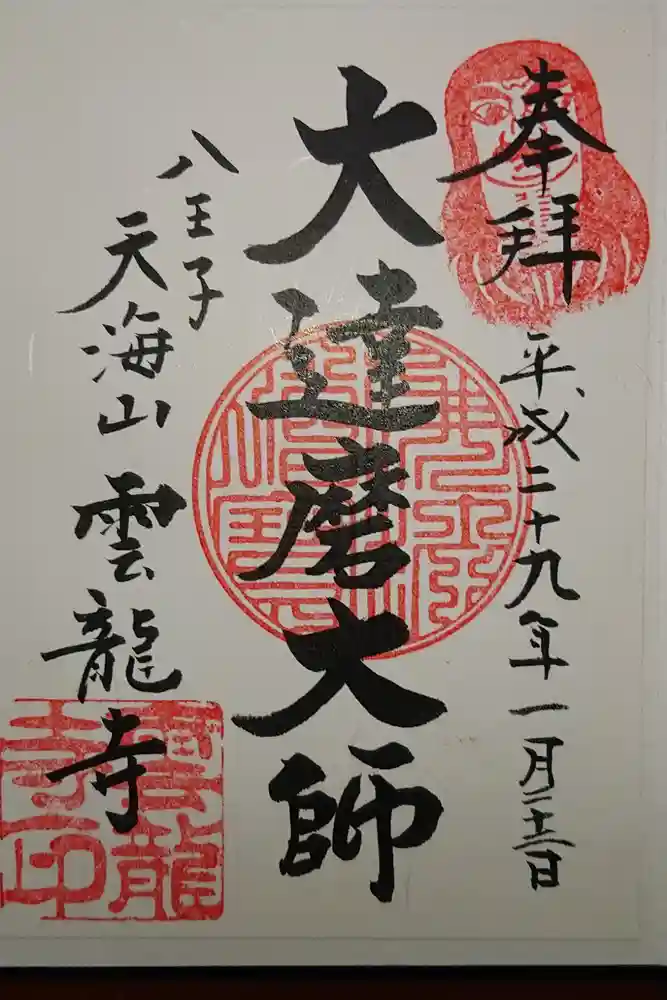 奉拝
平成二十九年一月二十二日
大達磨大師
八王子
天海山 雲龍寺
雲龍
寺印